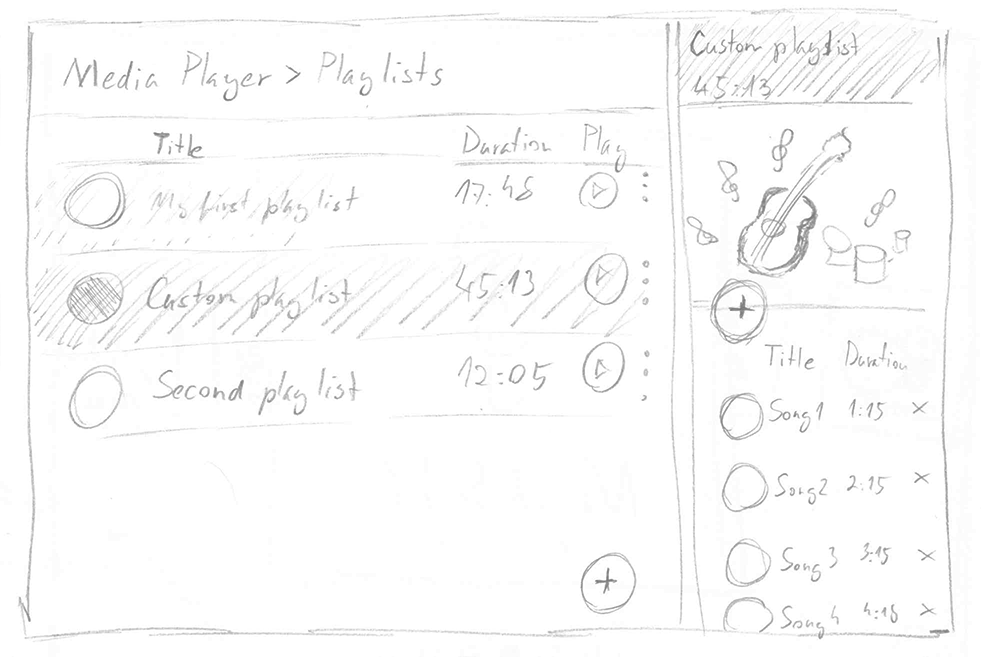 Media Player > Playlists
Title Duration Play
My first playlist 17:48
Custom playlist 45:13
Second playlist 12:05
+
Custom playlist
45:13
+
Title Duration
Song1 1:15 ×
Song2 2:15 ×
Song 3 3:15 ×
Song4 4:15 ×